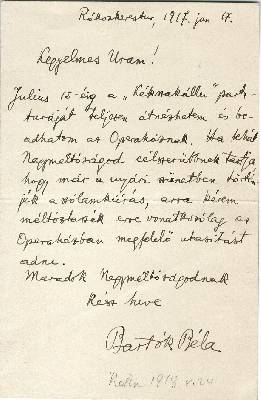 Rákoskeresztur, 1917. jun 17.
Kegyelmes Uram!
Julius 15-éig a „Kékszakállu” parti-
turáját teljesen átnézhetem és be-
adhatom az Operaháznak. Ha tehát
Nagyméltóságod célszerűnek tartja
hogy már a nyári szünetben történ-
jék a szólamkiirás, arra kérem
méltóztassék erre vonatkozólag az
Operaházban megfelelő utasitást
adni.
Maradok Nagyméltóságodnak
kész hive
Bartók Béla
1918 V. 24